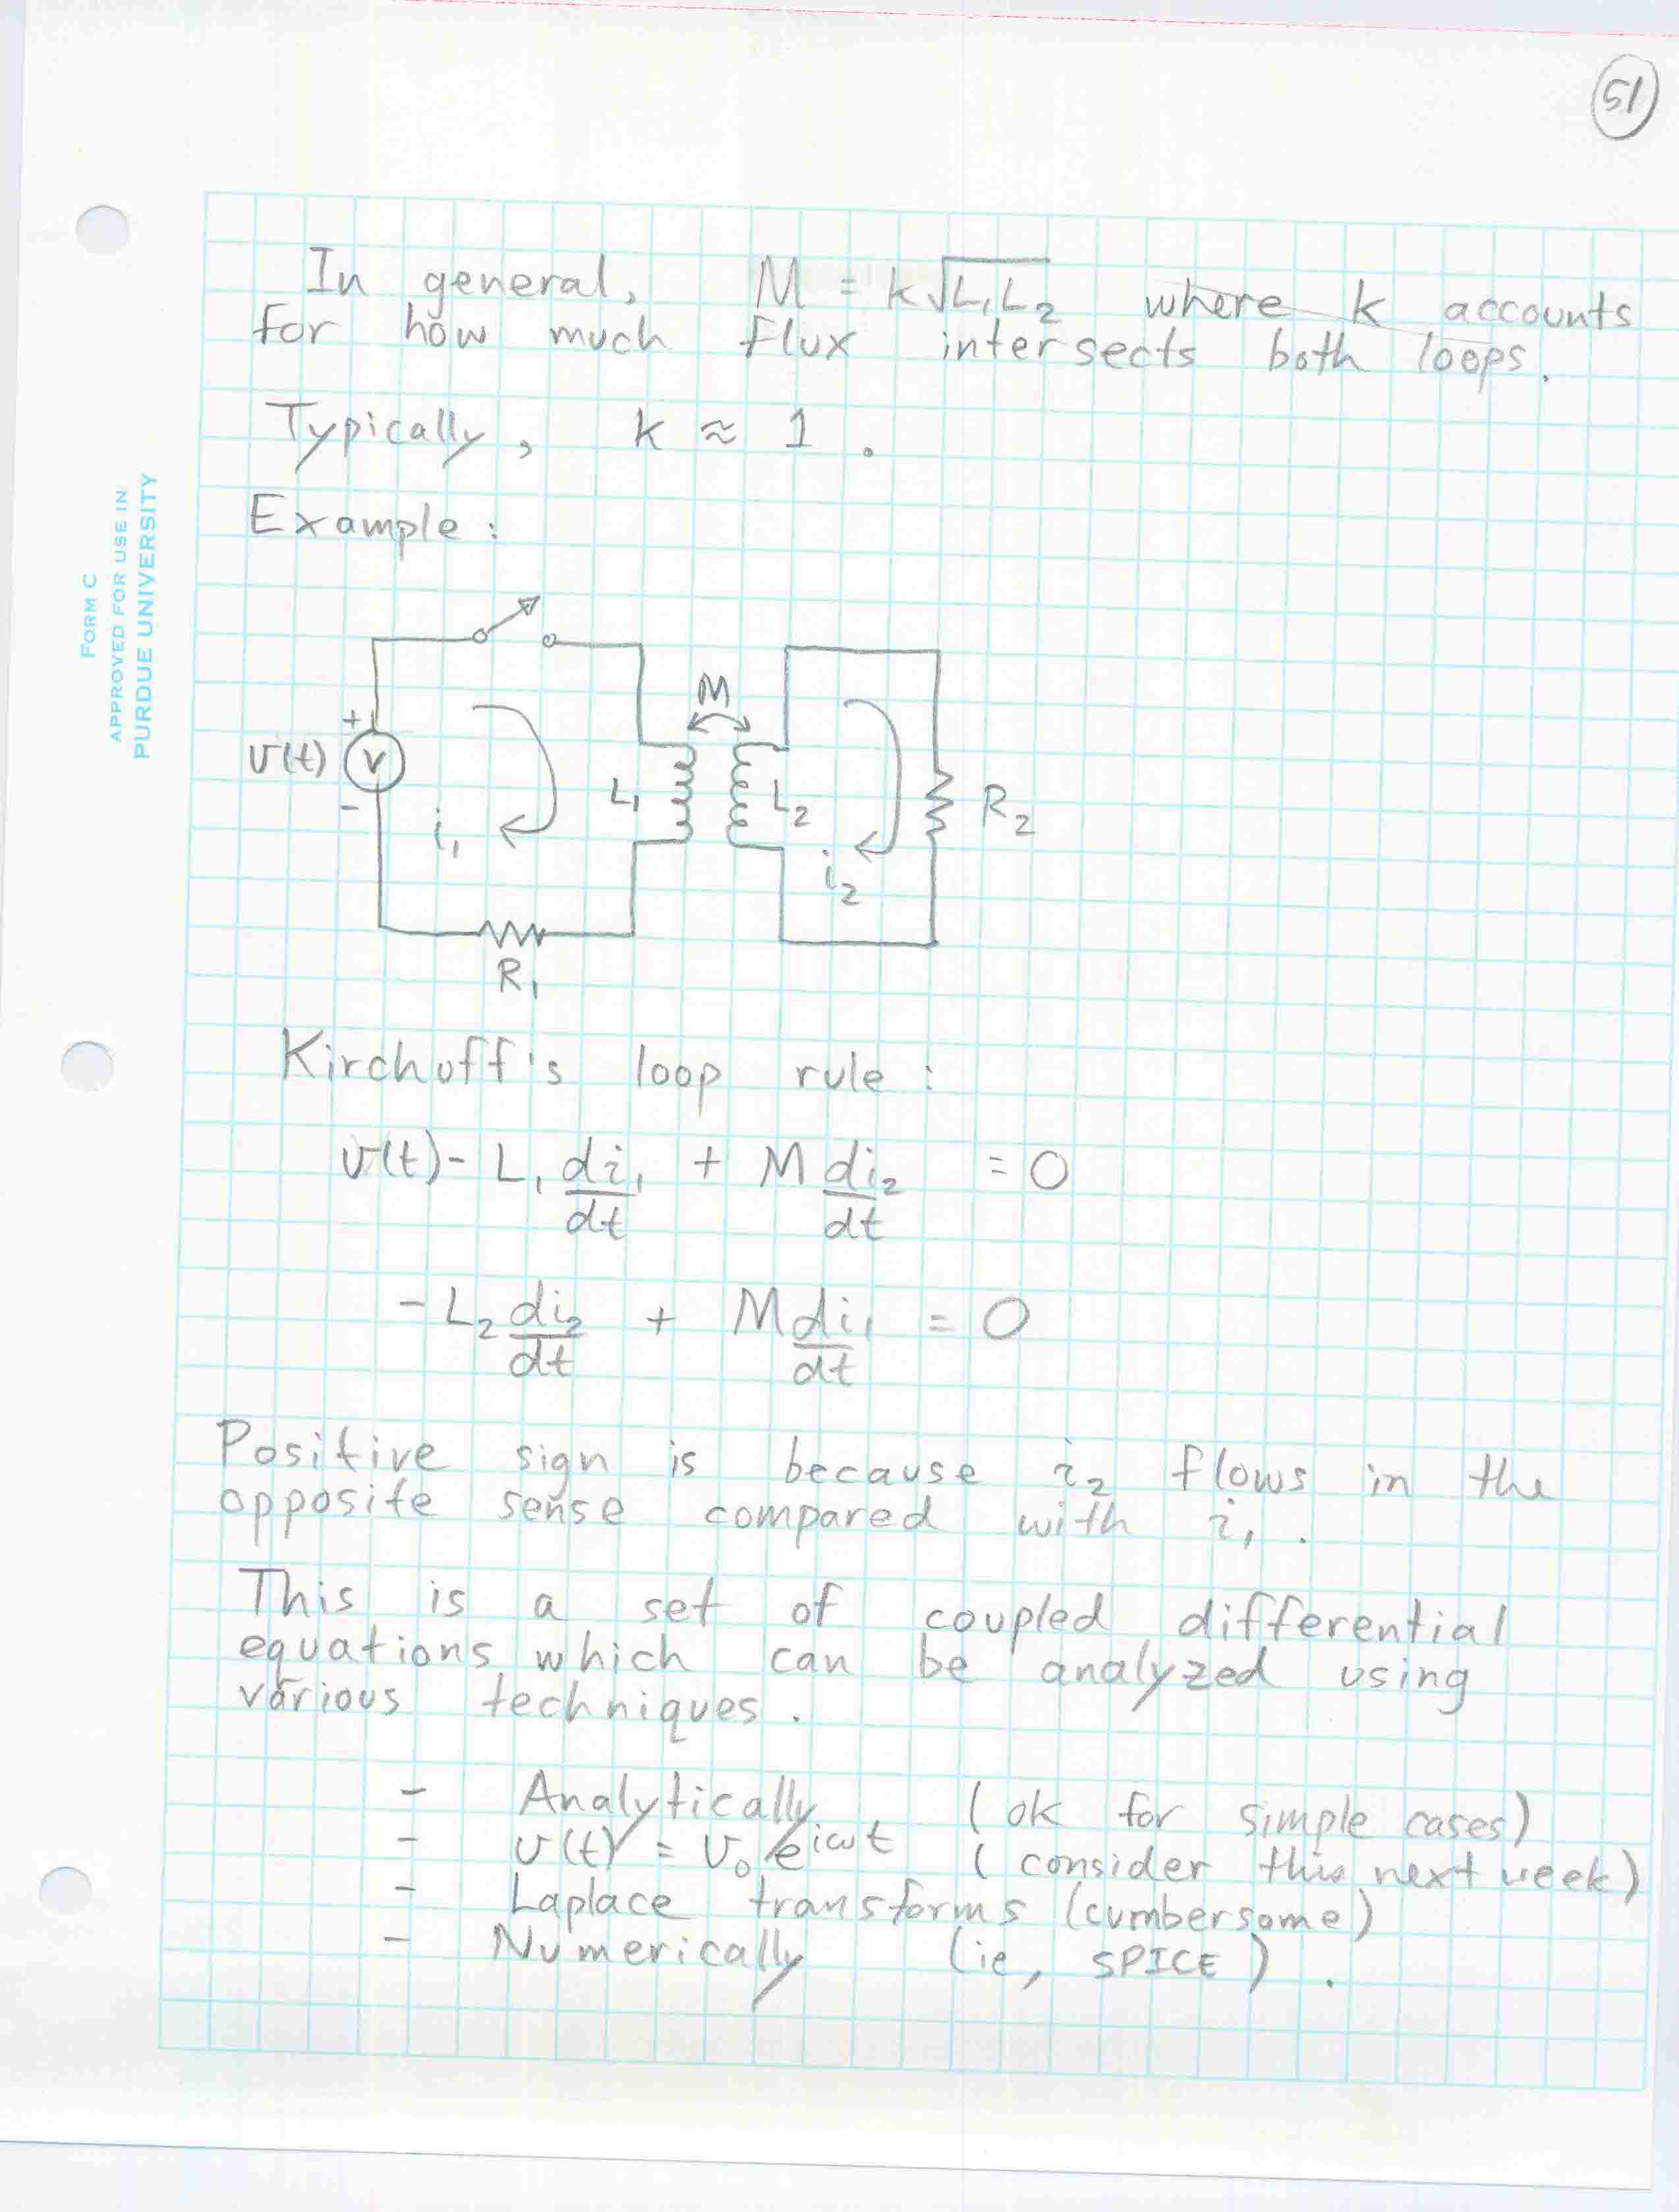 51
In general, M = k√L₁L₂ where k accounts
for how much flux intersects both loops.
Typically, k ≈ 1 .
FORM C
APPROVED FOR USE IN
PURDUE UNIVERSITY
Example :
M
+
v(t) V
-
i₁
L₁
L₂
i₂
R₂
R₁
Kirchoff's loop rule :
v(t) - L₁ di₁/dt + M di₂/dt = 0
- L₂ di₂/dt + M di₁/dt = 0
Positive sign is because i₂ flows in the
opposite sense compared with i₁ .
This is a set of coupled differential
equations which can be analyzed using
various techniques .
- Analytically (ok for simple cases)
- v(t) = v₀ e^iωt (consider this next week)
- Laplace transforms (cumbersome)
- Numerically (ie, SPICE) .